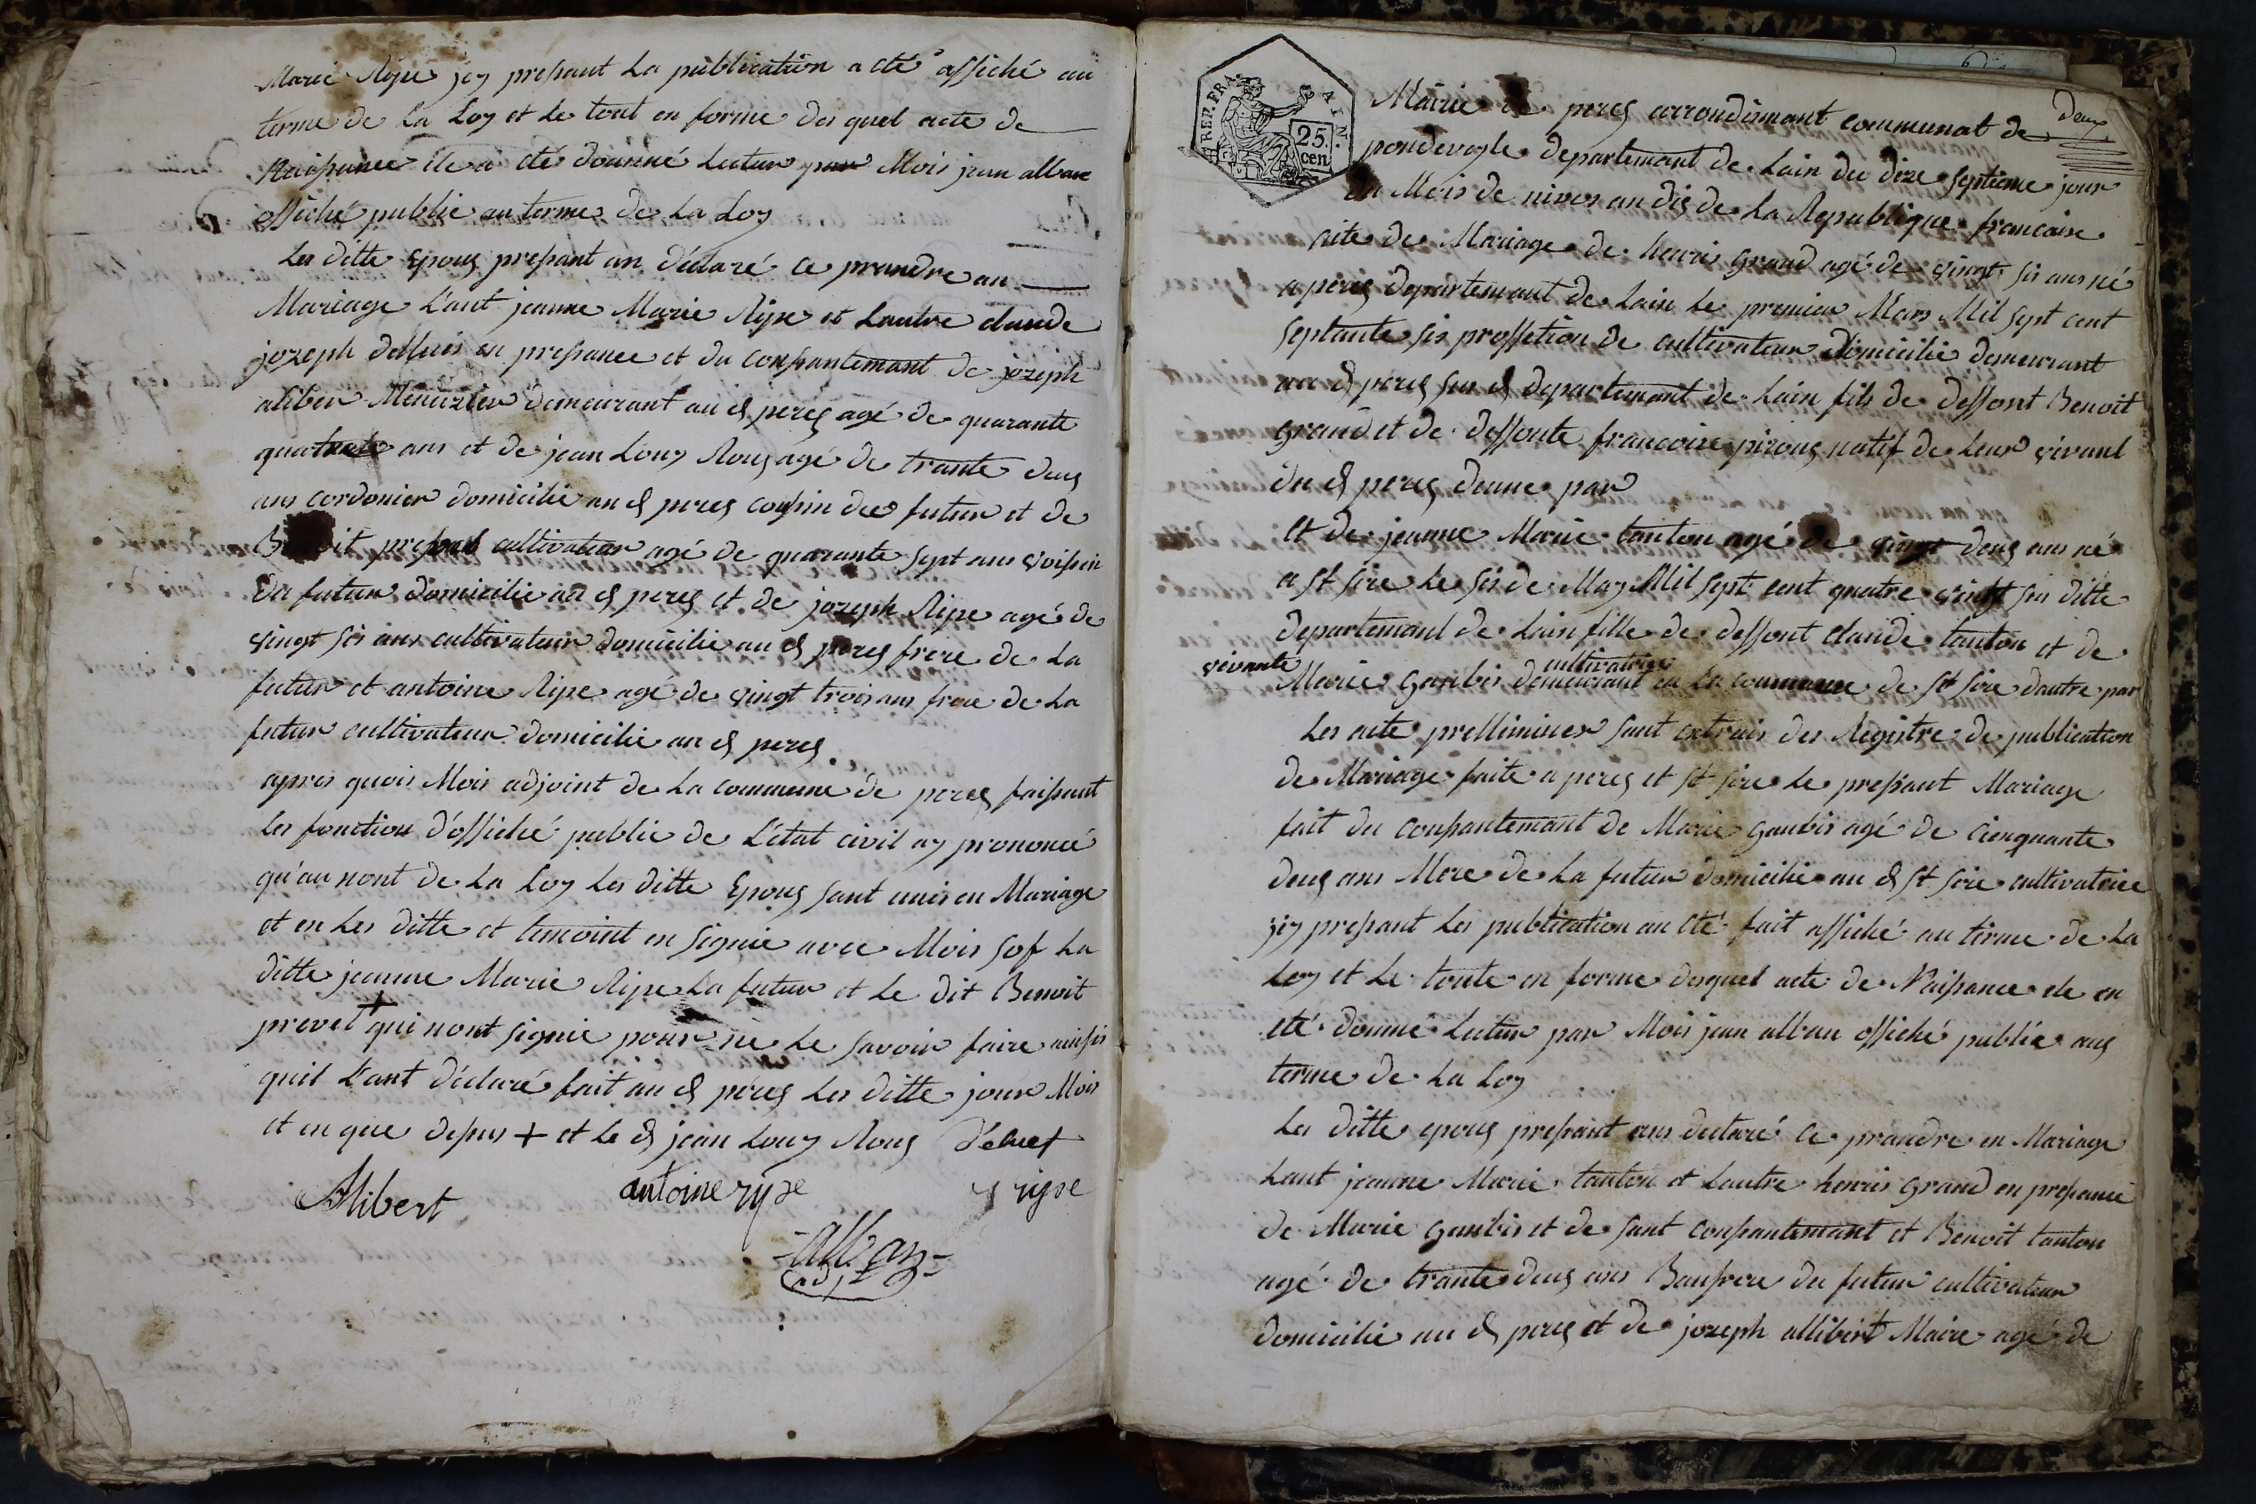 Marie Ripe jcy pressant la publication a eté affiché au
terme de la Loy et le tout en forme des quel acte de
Naissance ile a été donné Lectur par Mois jean alban
offiché public au termes de la Loy
Les ditte Epous pressant an déclaré ce prandre an
Mariage L'ant jeanne Marie Ripe et Lautre claude
jozeph en pressance et du conssantemant de jozeph
aliber Menuzier demeurant au d peres agé de quarante
quatre ans et de jean Louy Rous agé de trante deus
ans cordonier domicilié au d peres coussin du futur et de
cultivateur agé de quarante sept ans voissin
du futur domicilié au d peres et de jozeph Ripe agé de
vingt sis ans cultivateur domicilié au d peres frère de la
futur et antoine Ripe agé de vingt trois ans frere de la
futur cultivateur domicilié au d peres.
apres quois Mois adjoint de la commune de peres faissant
les fonction d'offiché public de L'état civil ay prononcé
qu'au nont de la Loy Les ditte Epous sant unis en Mariage
et en les ditte et temoint en signié avec Mois sof La
ditte jeanne Marie Ripe La futur et le dit Benoit
prevet + qui nont signié pour ne le savoir faire ainsis
quil L'ant déclaré fait au d peres Les ditte jour Mois
et en que dessus + et le d jean Louy Rous
Alibert antoine rype j ripe
alban
adjt
25
cen
REP. FRA.
AIN
deux
Mairie de peres arrondisemant communal de
pondevagle departemant de Lain du dixe septieme jour
du Mois de nivos an dis de la Republique francaise
acte de Mariage de henris grand agé de vingt sis ans né
a peres departemant de Lain le premier Mars Mil sept cent
septante sis proffetion de cultivateur domicilié demeurant
au d peres sus d departemant de Lain fils de deffont Benoit
grand et de deffonte francoise pirous natif de Leur vivant
du d peres d'une par
et de jeanne Marie tanton agé de vingt deus ans né
a st sire le sis de May Mil sept cent quatre vingt sus ditte
departemant de Lain fille de deffont claude tanton et de
vivante Marie gaubis cultivatrice demeurant en la commune de st sire dautre par
Les acte prelliminer sant extrais des Registre de publication
de Mariage faite a peres et st sire le pressant Mariage
fait du conssantemant de Marie gaubis agé de cienquante
deus ans Mere de la futur domicilié au d st sire cultivatrice
jcy pressant les publication an eté fait affiché au terme de La
Loy et le toute en forme desquel acte de Naissance ele en
eté donné Lectur par Mois jean alban offiché publié aus
terme de la Loy
Les ditte epous pressant ans declaré ce prandre en Mariage
Lant jeanne Marie tanton et Lautre henris grand en pressance
de Marie gaubis et de sant conssantemant et Benoit tanton
agé de trante deus ans Baufrere du futur cultivateur
domicilié au d peres et de jozeph allibert Maire agé de